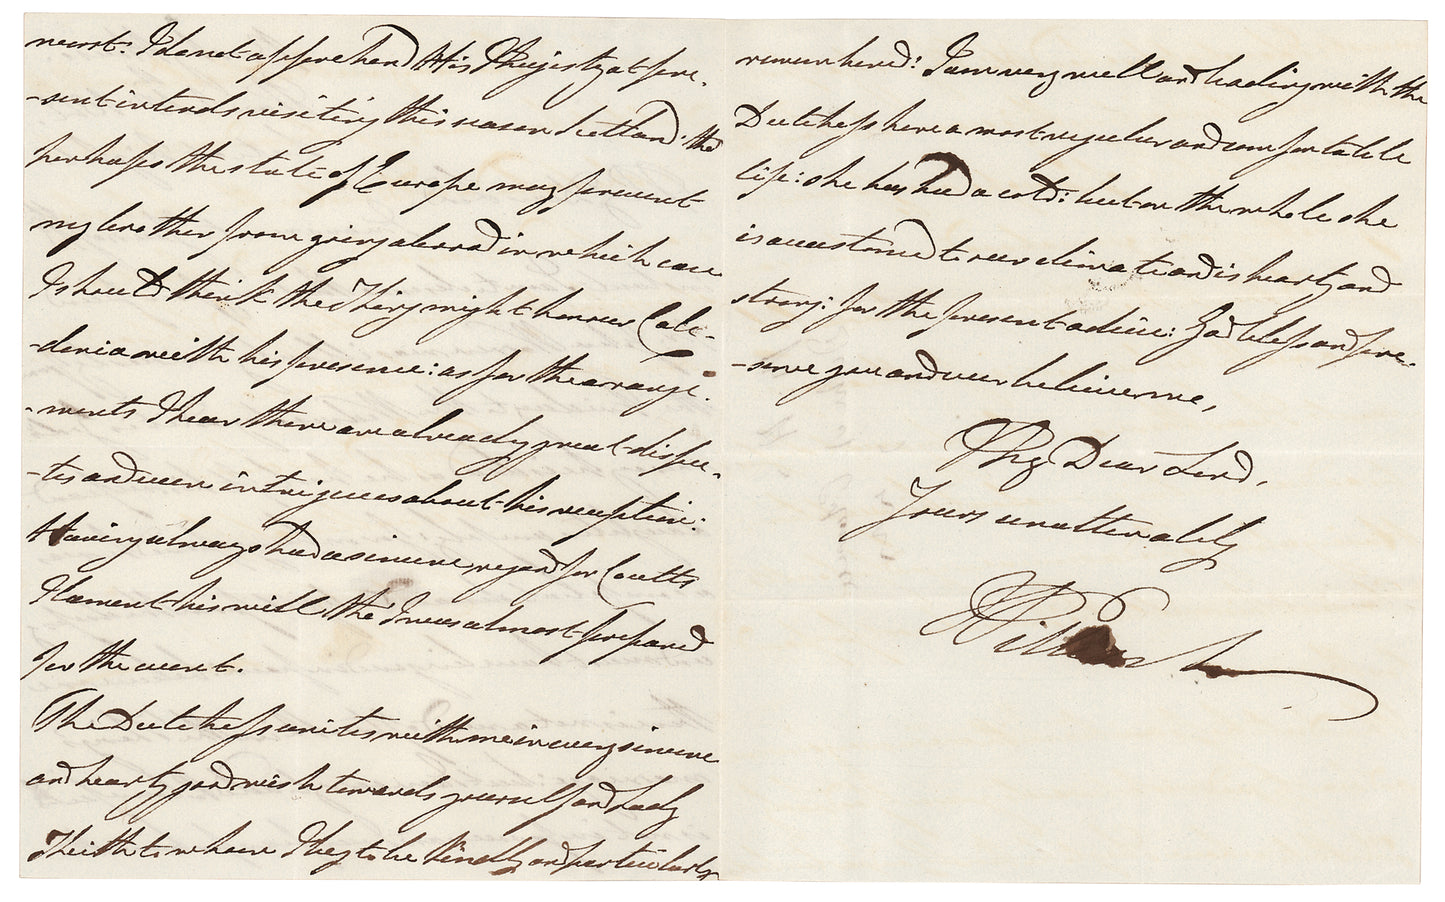 next: I do not apprehend His Majesty at pre-
-sent intends visiting this season Scotland: tho
perhaps the state of Europe may prevent
my brother from going abroad in which case
I should think the King might honour Cale-
-donia with his presence: as for the arrange-
-ments I hear there are already great dispu-
-tes and even intrigues about his reception:
Having always had a sincere regard for Coutts
I lament his will tho I was almost prepared
for the event.
The Dutchess unites with me in every sincere
and hearty good wish towards yourself and Lady
Keith to whom I beg to be kindly and particularly
remembered: I am very well and leading with the
Dutchess here a most regular and comfortable
life: she has had a cold: but on the whole she
is accustomed to our climate and is hearty and
strong: for the present adieu: God bless and pre-
-serve you and ever believe me,
My Dear Lord,
Yours unalterably
William